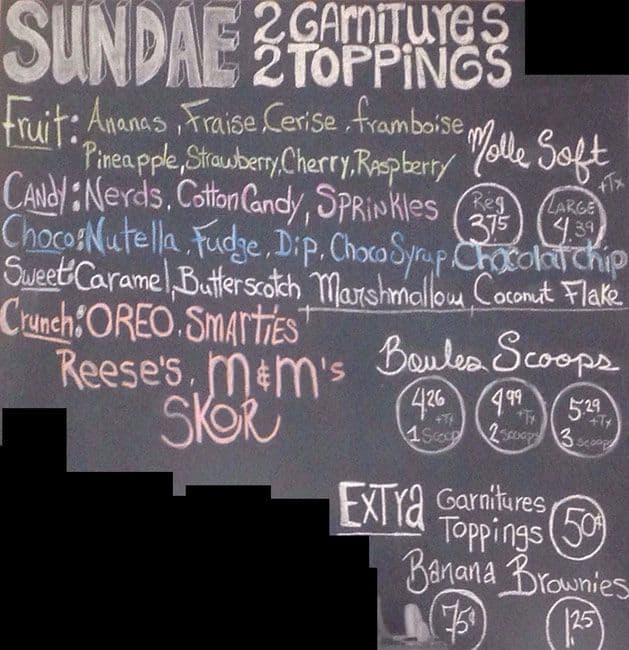 SUNDAE 2 GARNITURES
2 TOPPINGS
Fruit: Ananas, Fraise, Cerise, framboise
Pineapple, Strawberry, Cherry, Raspberry
Molle Soft
+Tx
Candy: Nerds, Cotton Candy, SPRINKles
Reg
3.75
LARGE
4.39
Choco: Nutella, Fudge, Dip, Choco Syrup, Chocolat chip
Sweet: Caramel, Butterscotch, Marshmallow, Coconut Flake
Crunch: OREO, SMARTIES
Reese's, M&M's
SKOR
Boules Scoops
4.26 +Tx 1 Scoop
4.99 +Tx 2 scoops
5.29 +Tx 3 scoops
EXTRA Garnitures
Toppings 50¢
Banana Brownies
75¢ 1.25